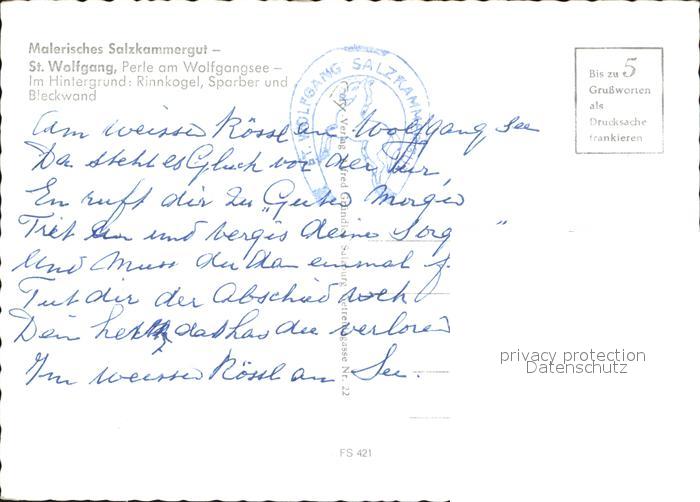 Malerisches Salzkammergut –
St. Wolfgang, Perle am Wolfgangsee –
Im Hintergrund: Rinnkogel, Sparber und
Bleckwand
ST. WOLFGANG SALZKAMMERGUT
Bis zu 5
Grußworten
als
Drucksache
frankieren
Am weisse Rössl am Wolfgang See
Da steht es Glück vor der Tür,
En ruft dir zu "Guten Morgen
Tret ein und vergis deine Sorg "
Und muss du dan einmal f.
Tut dir der Abschied weh
Dein herz das has du verloren
Im weisse Rössl am See.
Nr. 22
FS 421
privacy protection
Datenschutz